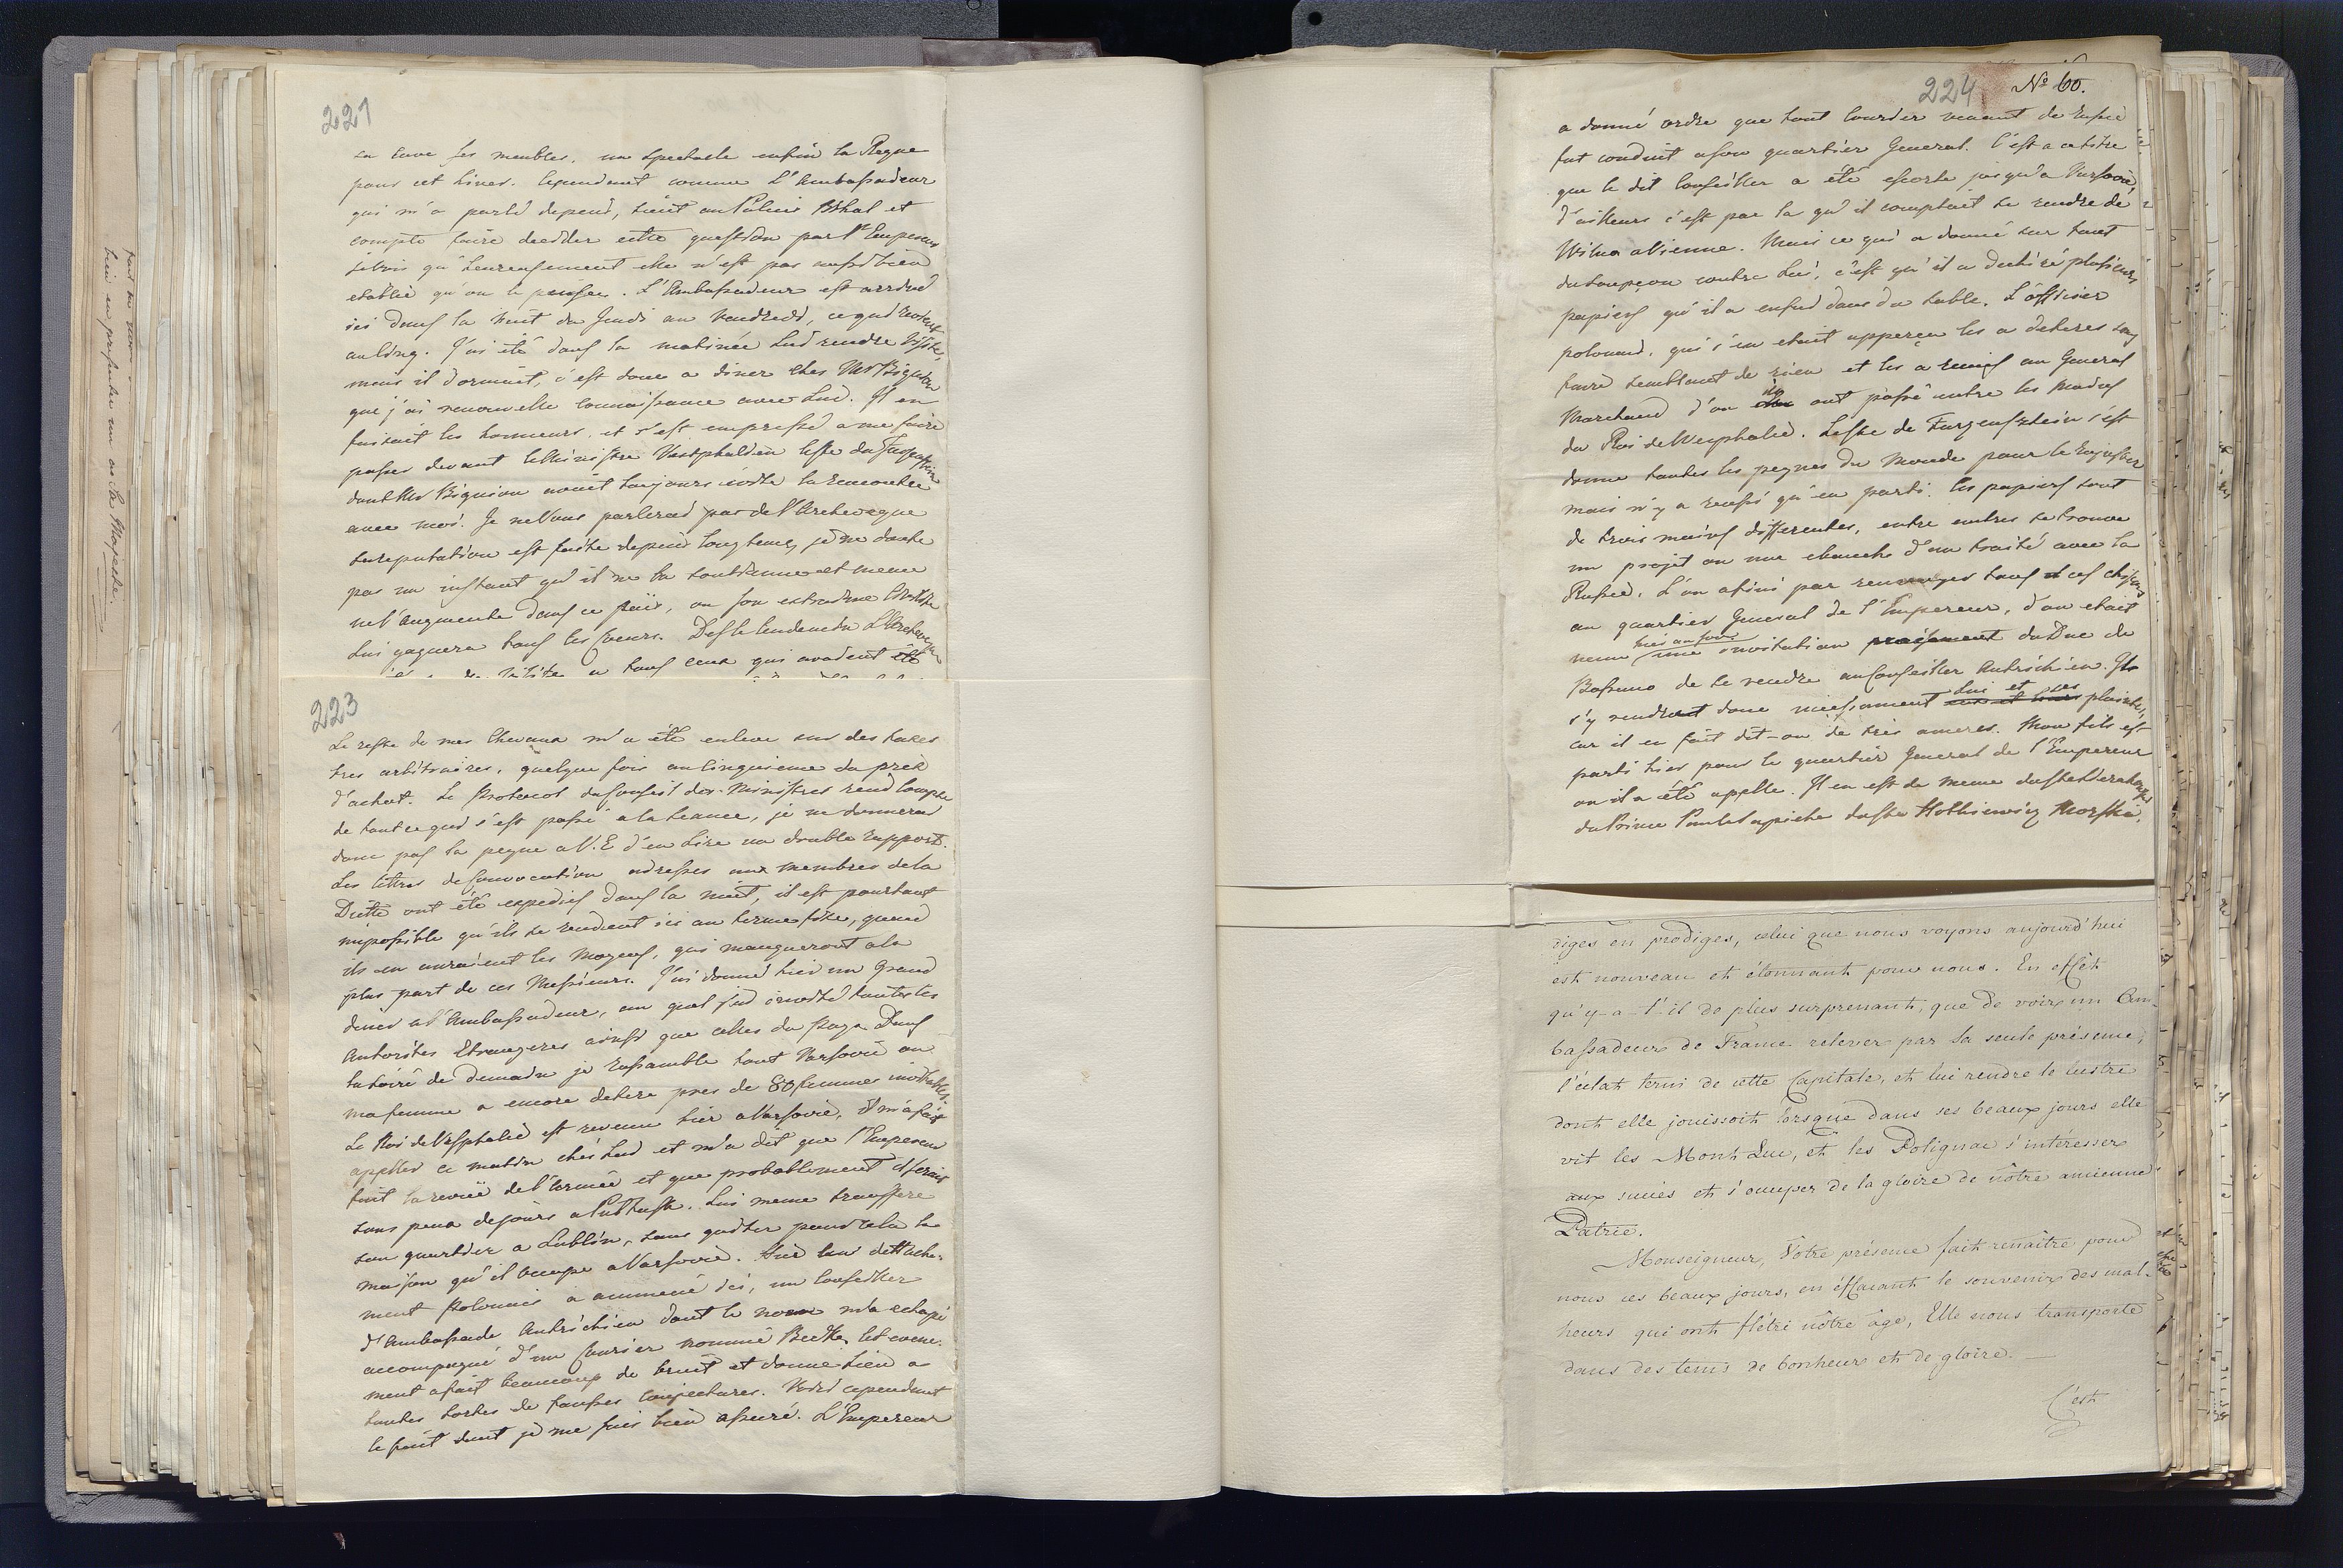 221
sa cave ses meubles, un spectacle enfin la Reque
pour cet hiver. Cependant comme L'Ambassadeur
qui m'a parlé depend, tient au Palais Bhal et
compte faire decider cette question par l'Empereur
je vois qu'heureusement elle n'est pas aussi bien
etablie qu'on le pensou. L'Ambassadeur est arrivé
ici dans la nuit du Jeudi au Vendredi, ce qui revient
au cinq. J'ai été dans la matinée lui rendre visite,
mais il dormait, c'est donc a diner chez Mr Bignon
que j'ai renouvelle connaissance avec Lui. Il en
faisait les honneurs, et s'est empressé a me faire
passer devant le Ministre Vestphalien
dont Mr Bignon avoit toujours evité la rencontre
avec moi. Je ne Vous parlerai pas de l'Archeveque
sa reputation est faite depuis longtems, je ne doute
pas un instant qu'il ne la soutienne et meme
ne l'augmente dans ce païs, ou son extreme
lui gagnera tous les Coeurs. Des le lendemain L'Archeveque
a tous ceux qui avoient été
223
Le reste de mes Chevaux m'a été enleve sur des taxes
tres arbitraires, quelque fois au cinquieme du prix
d'achat. Le Protocol du Conseil des Ministres rend compte
de tout ce qui s'est passé a la seance, je ne donnerai
donc pas la peyne a V.E d'en lire un double rapport.
Les lettres de Convocation adressés aux membres de la
Diette ont été expediés dans la nuit, il est pourtant
impossible qu'ils se rendent ici au terme fixe, quand
ils en auroient les moyens, qui manqueront a la
plus part de ces Messieurs. J'ai donné hier un grand
diner a l'Ambassadeur, au quel j'ai invité toutes les
Autorités Etrangeres ainsi que celles du Pays. Dans
la soiré de demain je rassemble tout Varsovie ou
ma femme a encore detere pres de 80 femmes
Le Roi de Vesphalie est revenu hier a Varsovie, Il m'a fait
appeller ce matin chés Lui et m'a dit que l'Empereur
fait la revüe de l'armée et que probablement il serait
sous peux de jours a Pultusk. Lui meme transfere
son quartier a Lublin, sans quitter pour cela la
maison qu'il occupe a Varsovie. Hier un dettache-
ment Polonais a ammené ici, un Conseiller
d'Ambassade Autrichien dont le nom m'a echapé
accompagné d'un Courier nommé Beck, Cet evene-
ment a fait beaucoup de bruit et donne lieu a
toutes sortes de fausses conjectures. Voici cependant
le fait dont je me suis bien assuré. L'Empereur
224 No 60.
a donné ordre que tout Courier venant de Russie
fut conduit a son quartier General. C'est a ce titre
que le dit Conseiller a été escorté jusqu'a Varsovie,
d'ailleurs c'est par la qu'il comptait se rendre de
Wilna a Vienne. Mais ce qui a donné sur tout
du soupçon contre Lui, c'est qu'il a dechiré plusieurs
papiers qu'il a enfui dans du sable. L'officier
polonais, qui s'en etait apperçu les a deterés sans
faire semblant de rien et les a remis au General
Marchand d'ou ils ont passé entre les mains
du Roi de Wesphalie. Leske de
donne toutes les peynes du Monde pour le
mais n'y a reussi qu'en parti. Les papiers sont
de trois mains differentes, entre autres se trouve
un projet ou une ebauche d'un traité avec la
Russie. L'on a fini par renvoyer tous ces chifons
au quartier General de l'Empereur, d'ou etait
venu hier au soir une invitation du Duc de
Bassano de se rendre au Conseiller Autrichien. Il
s'y rendra donc lui et ses plaintes,
car il en fait dit-on de tres ameres. Mon fils est
parti hier pour le quartier General de l'Empereur
ou il a été appelle. Il en est de meme du
du Prince Paul Sapieha du Morski.
diges en prodiges, celui que nous voyons aujourd'hui
est nouveau et étonnant pour nous. En effêt
qu'y-a-t-il de plus surprenant, que de voir un Am-
bassadeur de France relever par sa seule présence,
l'éclat terni de cette Capitale, et lui rendre le lustre
dont elle jouissoit lorsque dans ses beaux jours elle
vit les Mont Luc, et les Polignac s'intéresser
aux succès et s'occuper de la gloire de nôtre ancienne
Patrie.
Monseigneur, Vôtre présence fait renaître pour
nous ces beaux jours, en éffacant le souvenir des mal-
heurs qui ont flétri nôtre âge, Elle nous transporte
dans des tems de bonheur et de gloire. —
C'est